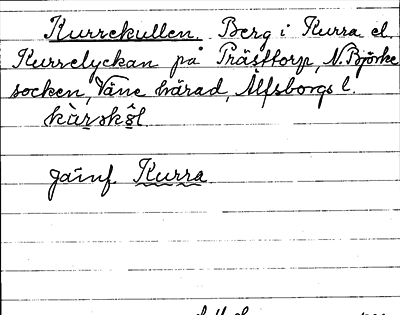 Kurrekullen. Berg i Kurra el.
Kurrelyckan på Prästtorp, N. Björke
socken, Väne härad, Älfsborgs l.
Jämf. Kurra